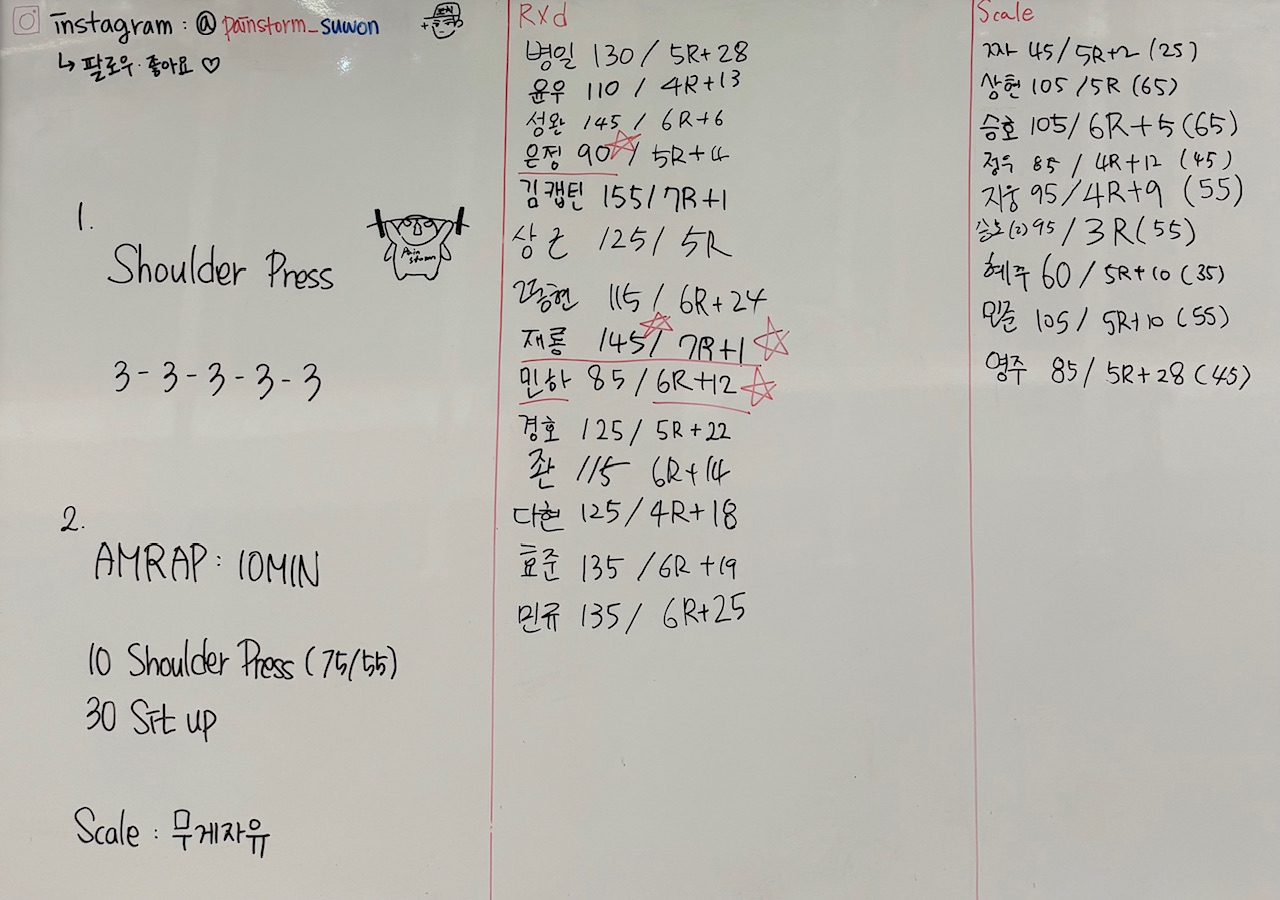 instagram : @ painstorm_suwon
↳ 팔로우·좋아요 ♡
1.
Shoulder Press
Pain storm
3-3-3-3-3
2.
AMRAP : 10MIN
10 Shoulder Press (75/55)
30 Sit up
Scale : 무게자유
Rxd
병일 130 / 5R+28
윤우 110 / 4R+13
성완 145 / 6R+6
은정 90 / 5R+4
김캡틴 155/7R+1
상근 125/ 5R
동현 115/ 6R+24
재룡 145/ 7R+1
민하 85 / 6R+12
경호 125/ 5R+22
좐 115 6R+14
다현 125/4R+18
효준 135 /6R +19
민규 135/ 6R+25
Scale
짜 45/5R+2 (25)
상현 105 /5R (65)
승호 105/6R+5(65)
정우 85 / 4R+12 (45)
지웅 95/4R+9 (55)
(2) 95 / 3R(55)
혜주 60 / 5R+10 (35)
민준 105 / 5R+10 (55)
영주 85/ 5R+28 (45)